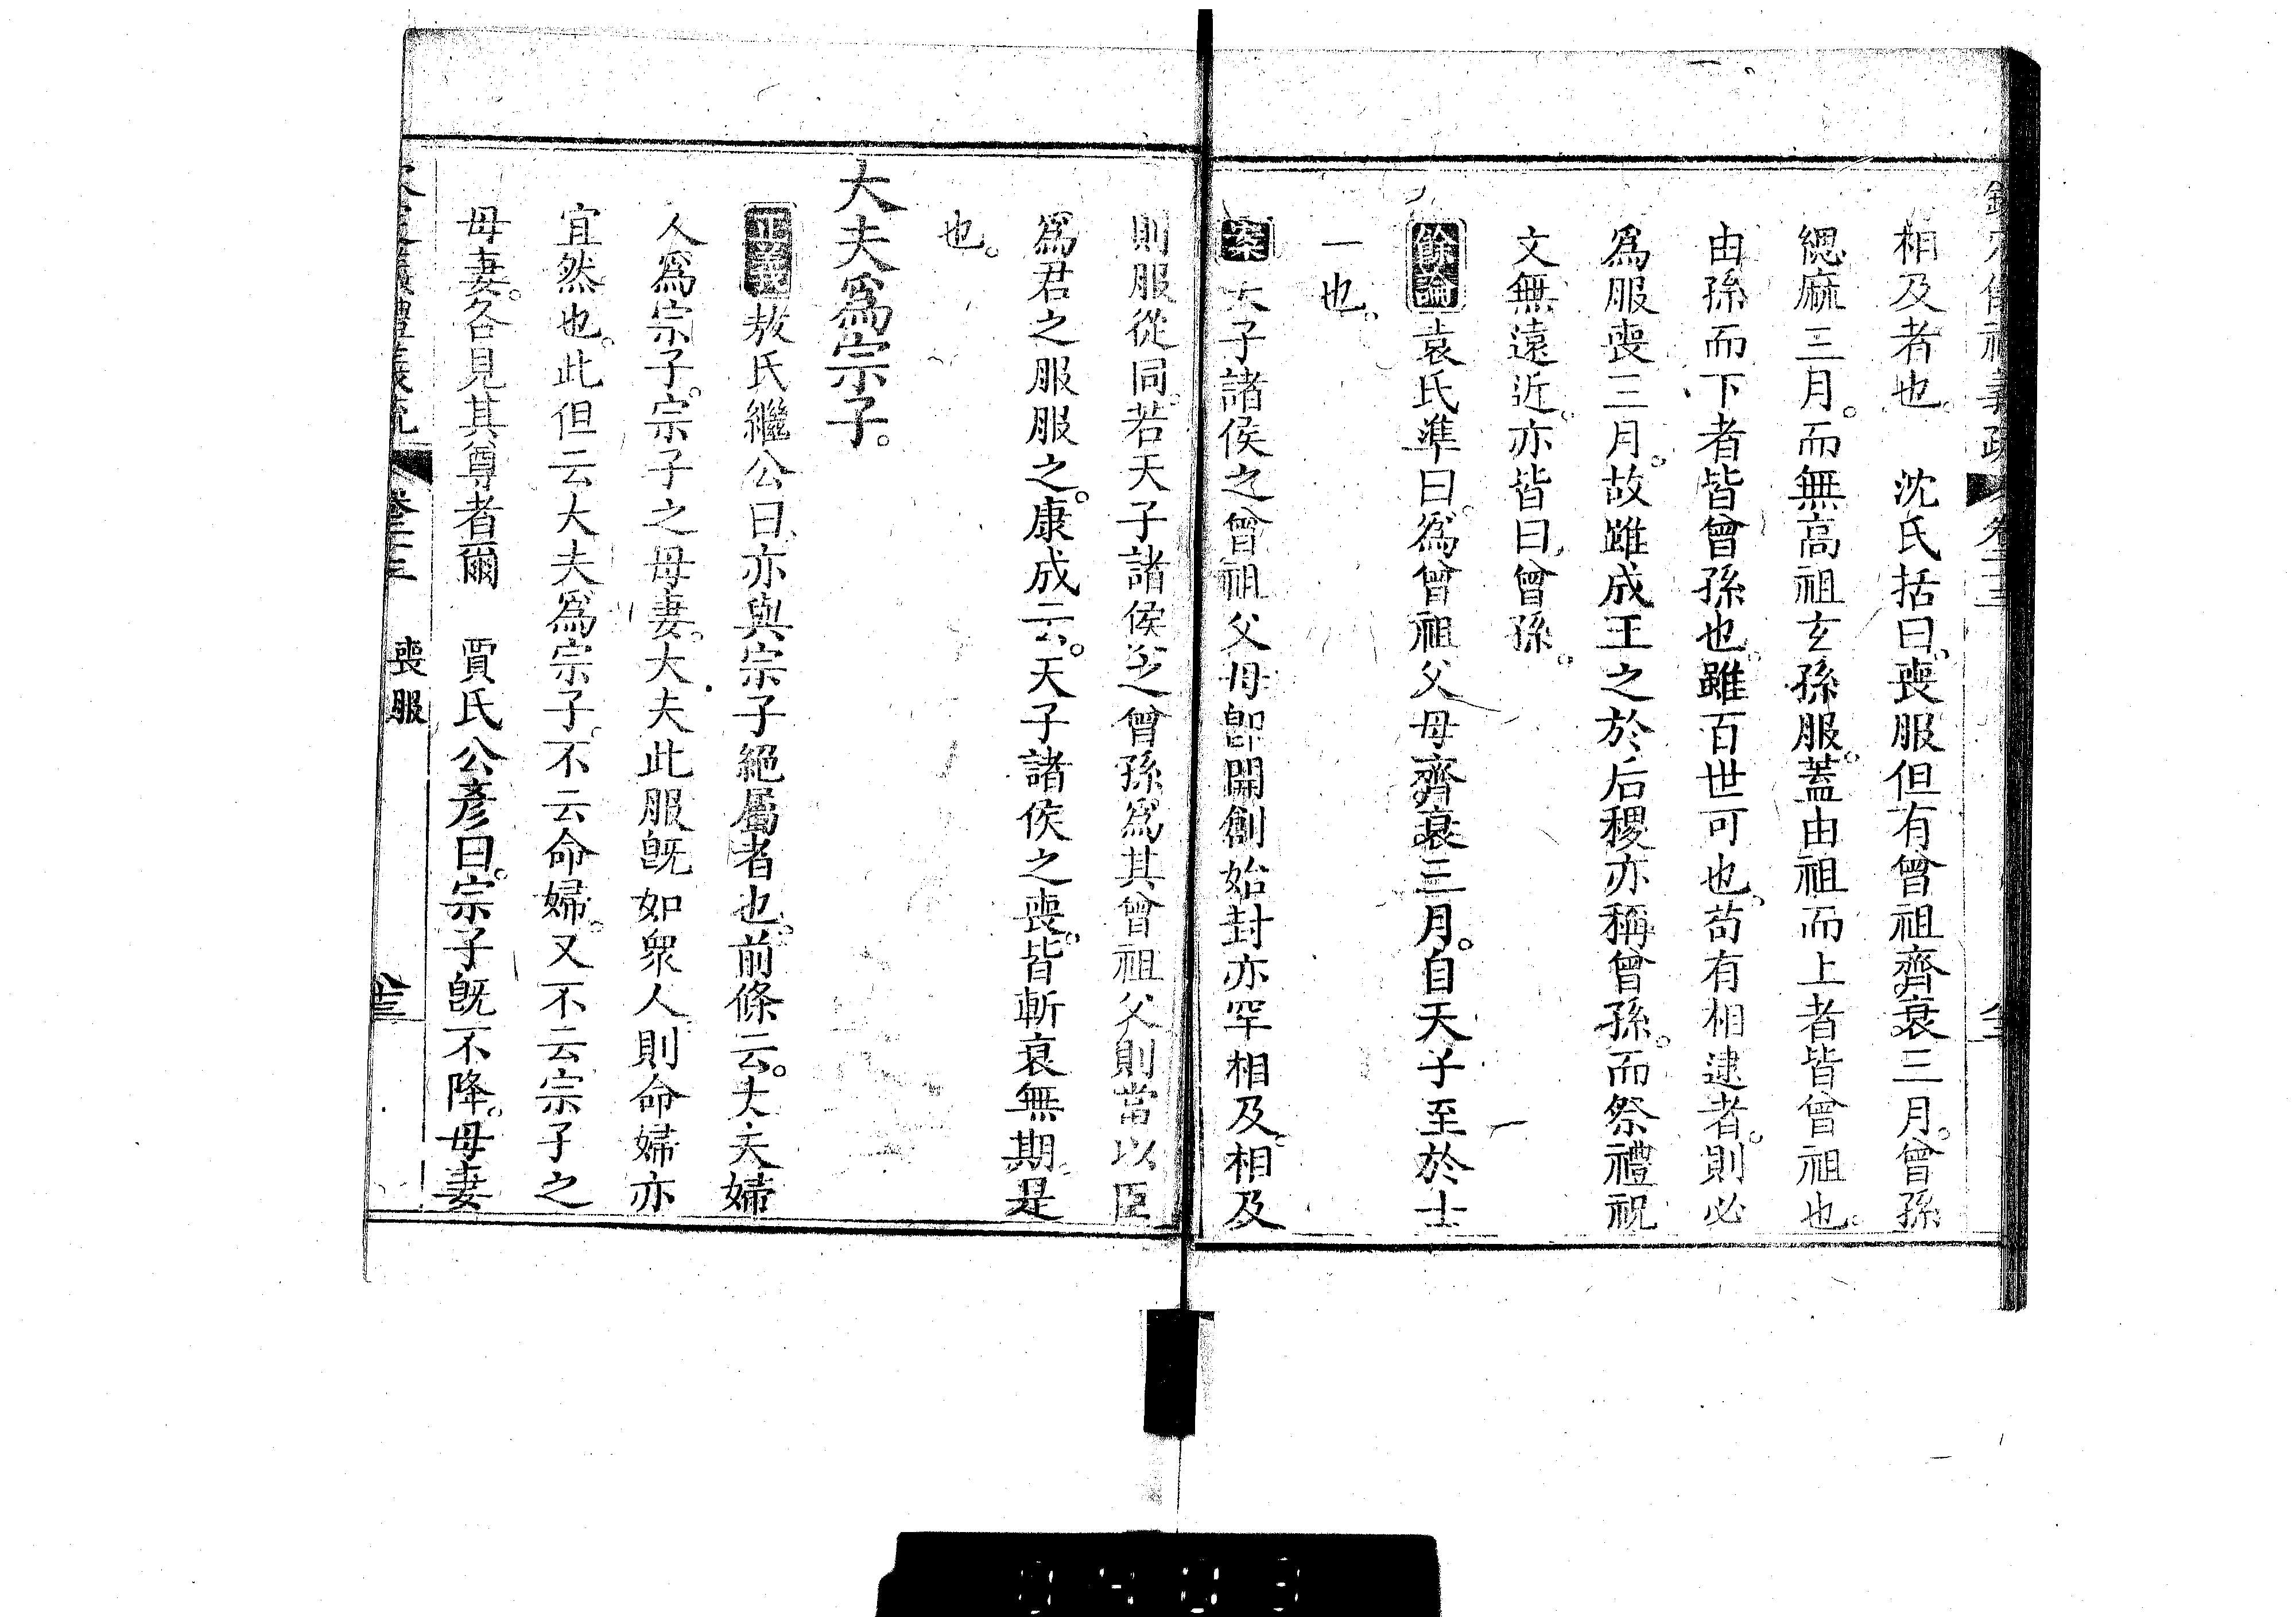 相及者也。　沈氏括曰、喪服但有曾祖齊衰三月。曾孫
緦麻三月。而無高祖玄孫服。蓋由祖而上者皆曾祖也。
由孫而下者皆曾孫也。雖百世可也、苟有相逮者。則必
爲服喪三月。故雖成王之於后稷亦稱曾孫。而祭禮祝
文無遠近。亦皆曰、曾孫。
餘論 袁氏準曰。爲曾祖父母齊衰三月。自天子至於士
一也。
案 天子諸侯之曾祖父母卽開創始封亦罕相及。相及
則服從同。若天子諸侯之曾孫爲其曾祖父則當以臣
爲君之服服之。康成云。天子諸侯之喪。皆斬衰無期。是
也。
大夫爲宗子。
正義 敖氏繼公曰、亦與宗子絕屬者也。前條云。丈夫婦
人爲宗子。宗子之母妻。大夫此服旣如衆人。則命婦亦
宜然也。此但云大夫爲宗子。不云命婦。又不云宗子之
母妻。各見其尊者爾　賈氏公彥曰。宗子旣不降。母妻
喪服